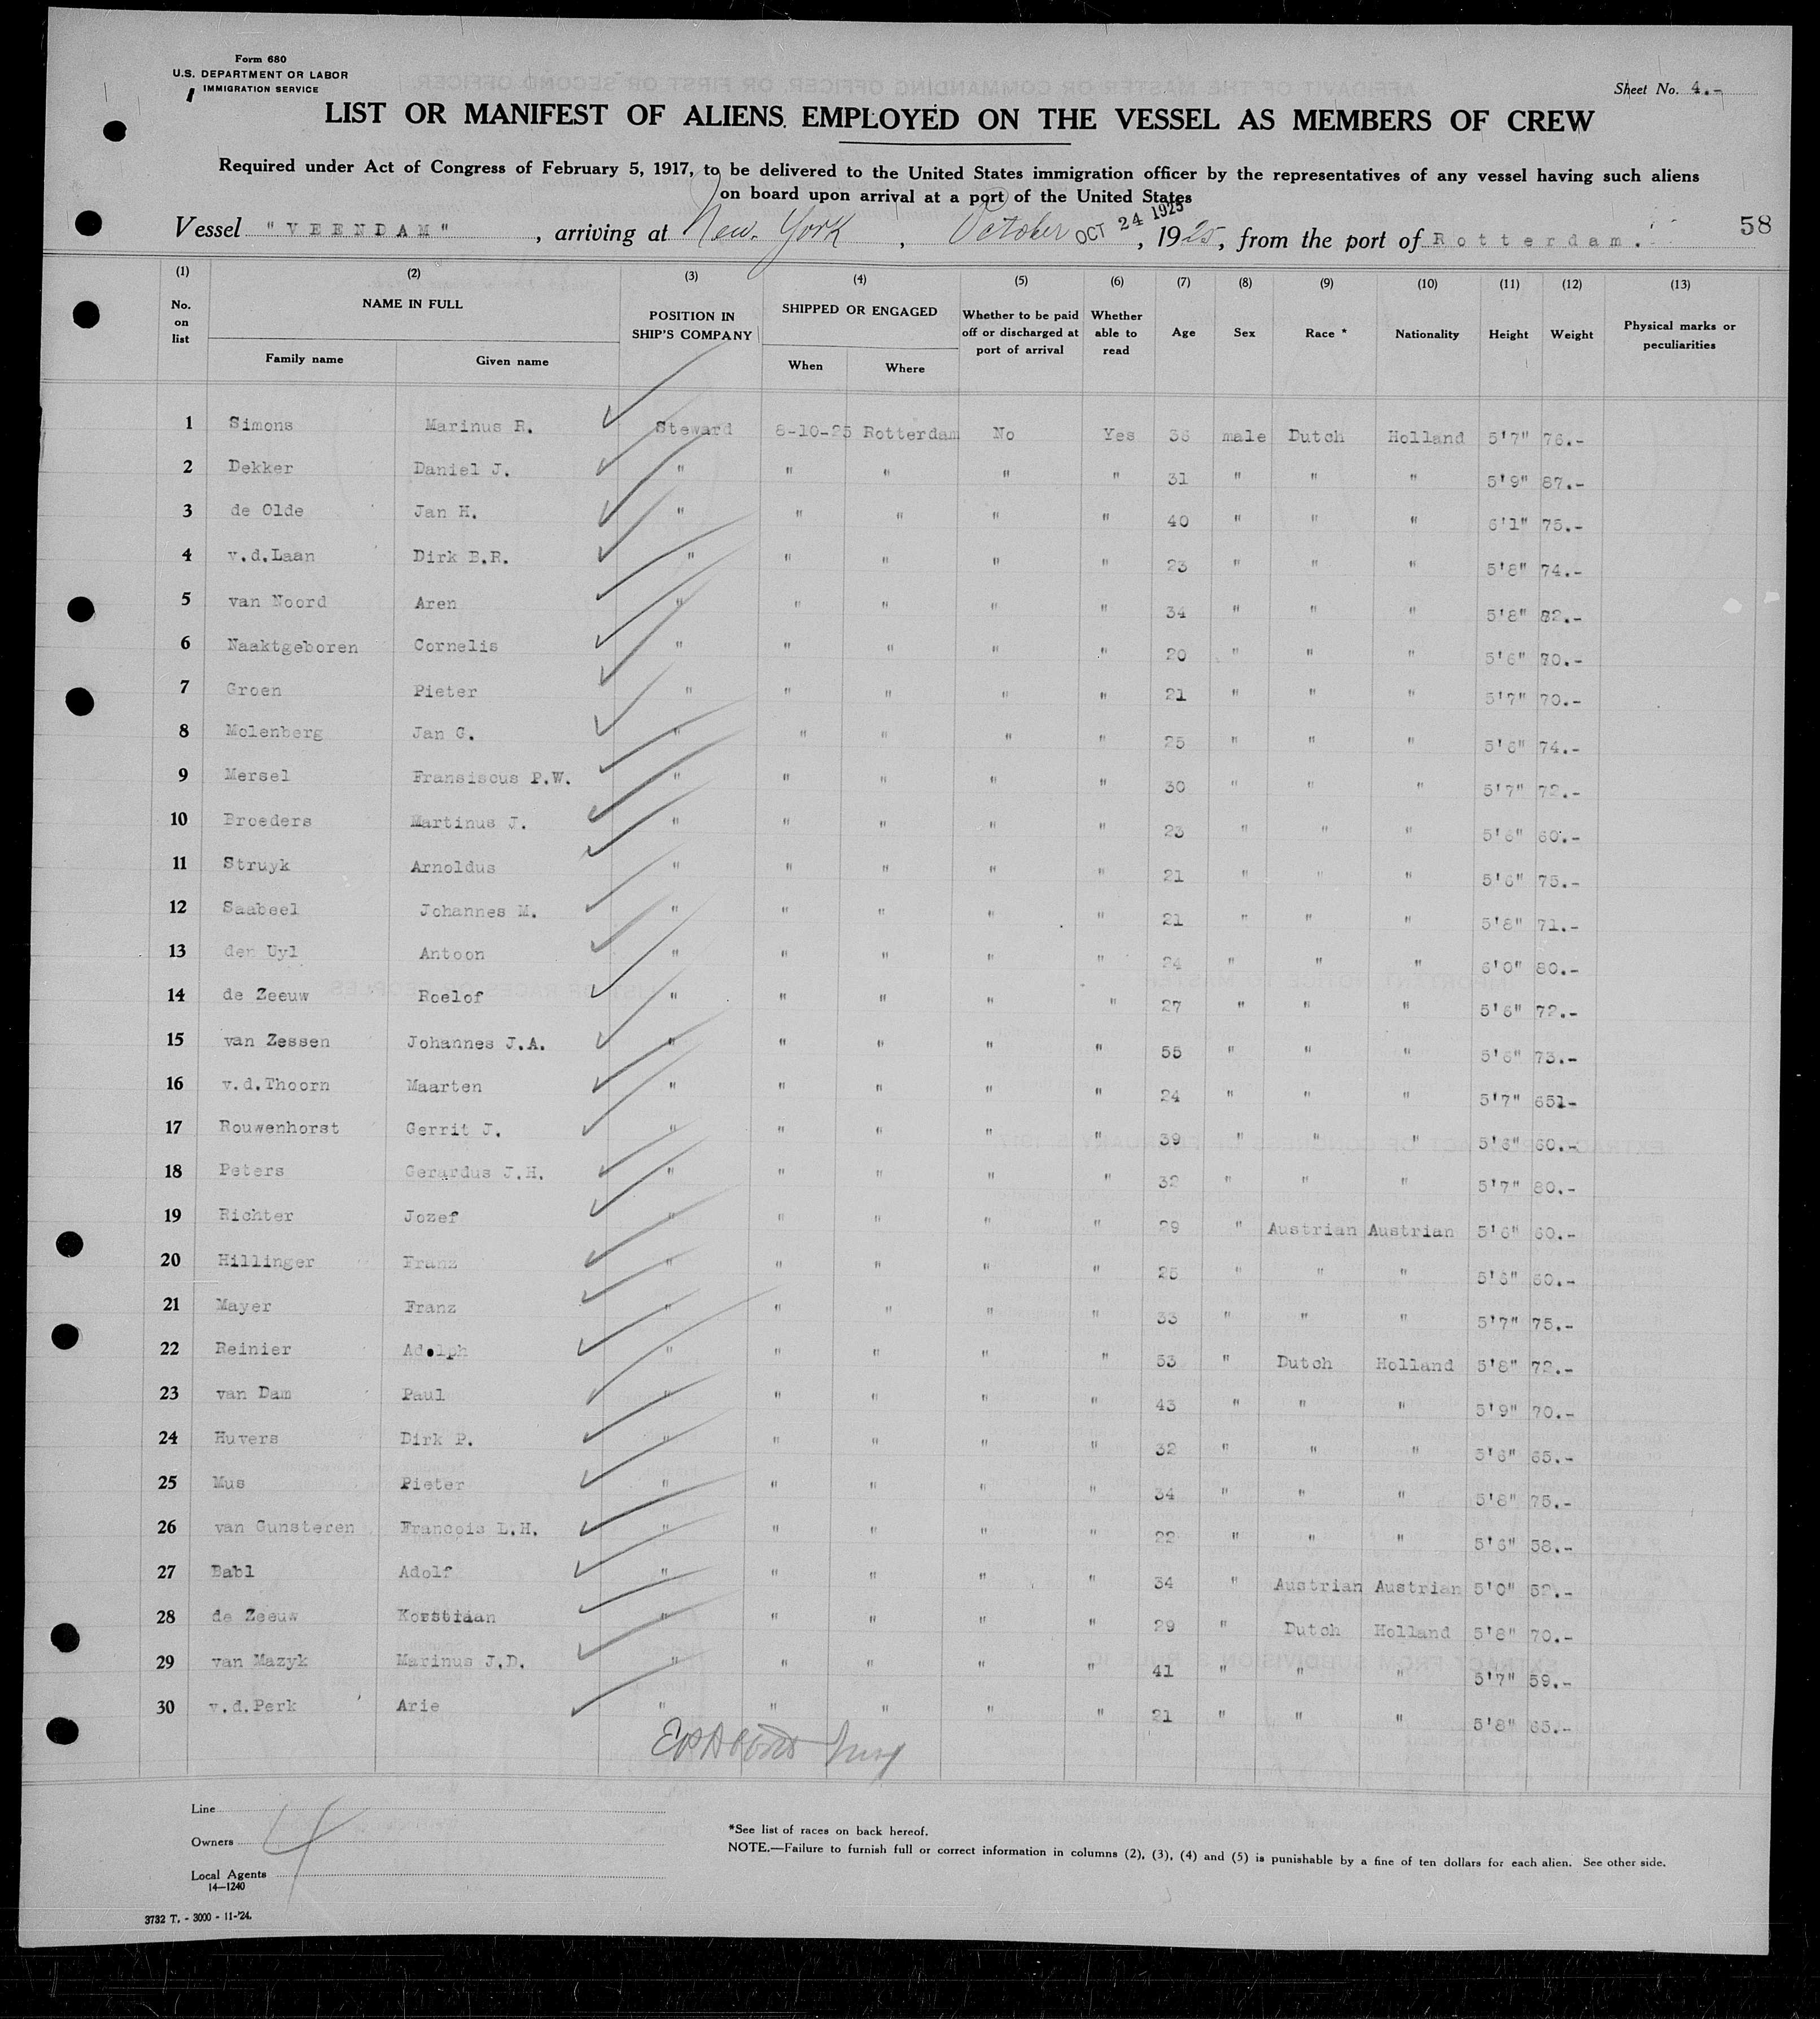 Form 680
U.S. DEPARTMENT OR LABOR
IMMIGRATION SERVICE
Sheet No. 4.-
LIST OR MANIFEST OF ALIENS EMPLOYED ON THE VESSEL AS MEMBERS OF CREW
Required under Act of Congress of February 5, 1917, to be delivered to the United States immigration officer by the representatives of any vessel having such aliens
on board upon arrival at a port of the United States
Vessel "VEENDAM", arriving at New York, October OCT 24 1925, 1925, from the port of Rotterdam.
58
(1) (2) (3) (4) (5) (6) (7) (8) (9) (10) (11) (12) (13)
No. on list NAME IN FULL Family name Given name POSITION IN SHIP'S COMPANY SHIPPED OR ENGAGED When Where Whether to be paid off or discharged at port of arrival Whether able to read Age Sex Race * Nationality Height Weight Physical marks or peculiarities
1 Simons Marinus R. Steward 8-10-25 Rotterdam No Yes 36 male Dutch Holland 5'7" 76.-
2 Dekker Daniel J. " " " " " 31 " " " 5'9" 87.-
3 de Olde Jan H. " " " " " 40 " " " 6'1" 75.-
4 v.d.Laan Dirk B.R. " " " " " 23 " " " 5'8" 74.-
5 van Noord Aren " " " " " 34 " " " 5'8" 82.-
6 Naaktgeboren Cornelis " " " " " 20 " " " 5'6" 70.-
7 Groen Pieter " " " " " 21 " " " 5'7" 70.-
8 Molenberg Jan G. " " " " " 25 " " " 5'6" 74.-
9 Mersel Fransiscus P.W. " " " " " 30 " " " 5'7" 72.-
10 Broeders Martinus J. " " " " " 23 " " " 5'6" 60.-
11 Struyk Arnoldus " " " " " 21 " " " 5'6" 75.-
12 Saabeel Johannes M. " " " " " 21 " " " 5'8" 71.-
13 den Uyl Antoon " " " " " 24 " " " 6'0" 80.-
14 de Zeeuw Roelof " " " " " 27 " " " 5'6" 72.-
15 van Zessen Johannes J.A. " " " " " 55 " " " 5'6" 73.-
16 v.d.Thoorn Maarten " " " " " 24 " " " 5'7" 651-
17 Rouwenhorst Gerrit J. " " " " " 39 " " " 5'6" 60.-
18 Peters Gerardus J.H. " " " " " 32 " " " 5'7" 80.-
19 Richter Jozef " " " " " 29 " Austrian Austrian 5'6" 60.-
20 Hillinger Franz " " " " " 25 " " " 5'6" 60.-
21 Mayer Franz " " " " " 33 " " " 5'7" 75.-
22 Reinier Adolph " " " " " 53 " Dutch Holland 5'8" 72.-
23 van Dam Paul " " " " " 43 " " " 5'9" 70.-
24 Huvers Dirk P. " " " " " 32 " " " 5'6" 65.-
25 Mus Pieter " " " " " 34 " " " 5'8" 75.-
26 van Gunsteren Francois L.H. " " " " " 22 " " " 5'6" 58.-
27 Babl Adolf " " " " " 34 " Austrian Austrian 5'0" 52.-
28 de Zeeuw Korstiaan " " " " " 29 " Dutch Holland 5'8" 70.-
29 van Mazyk Marinus J.D. " " " " " 41 " " " 5'7" 59.-
30 v.d.Perk Arie " " " " " 21 " " " 5'8" 65.-
Line
Owners
4
Local Agents
14—1240
*See list of races on back hereof.
NOTE.—Failure to furnish full or correct information in columns (2), (3), (4) and (5) is punishable by a fine of ten dollars for each alien. See other side.
3732 T. - 3000 - 11-'24.